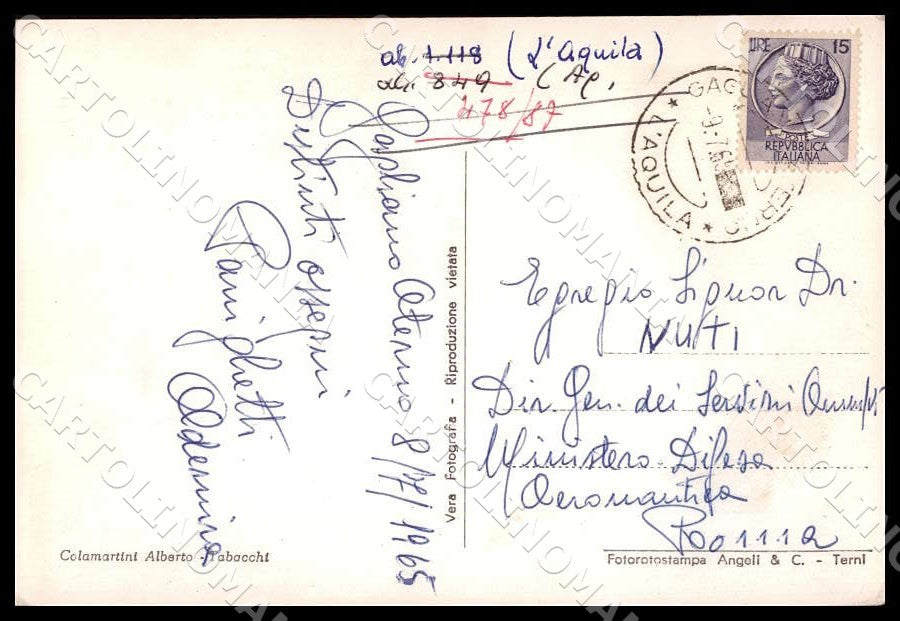 ab. 1.118 (L'Aquila)
ab. 849 (Ap.
478/87
LIRE 15
POSTE
REPVBBLICA
ITALIANA
L'AQUILA
Gagliano Aterno 8/7/1965
Distinti ossequi
Panighetti
Adernina
Vera Fotografia - Riproduzione vietata
Egregio Signor Dr.
NUTI
Dir. Gen. dei Servizi
Ministero Difesa
Aeronautica
Roma
Colamartini Alberto - Tabacchi
Fotorotostampa Angeli & C. - Terni
CARTOLINOMANIA